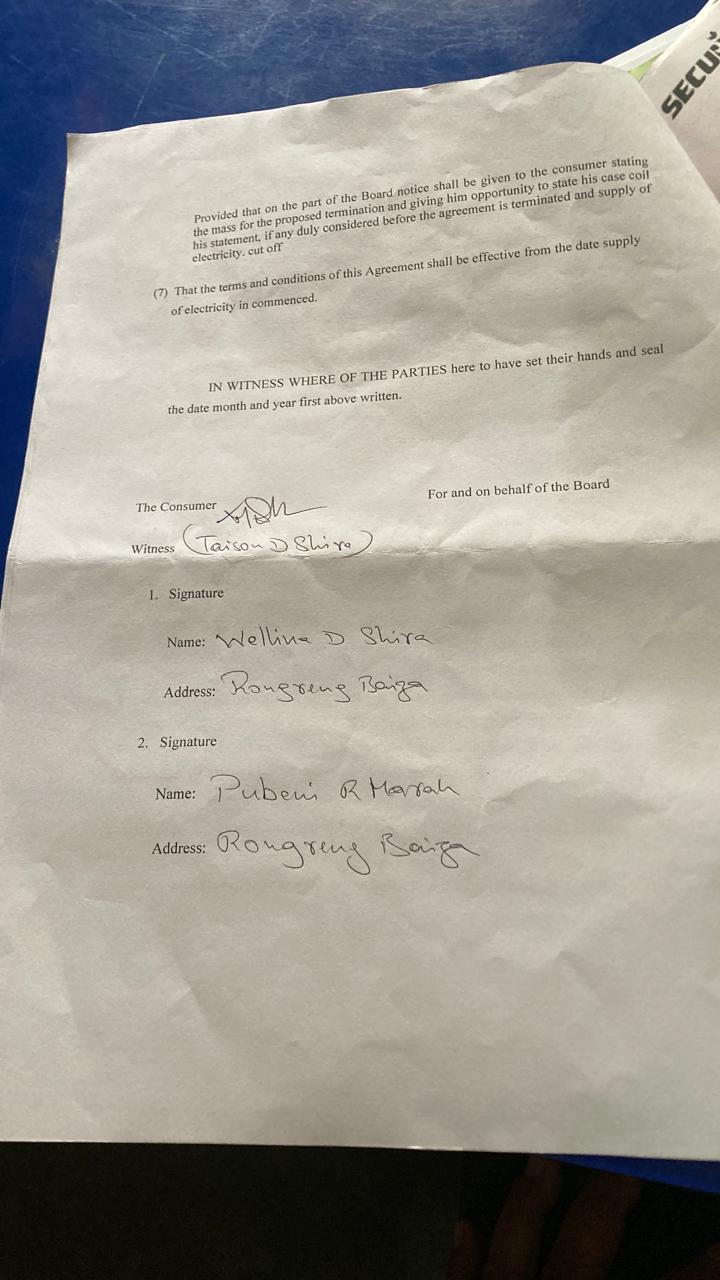 SECU
Provided that on the part of the Board notice shall be given to the consumer stating
the mass for the proposed termination and giving him opportunity to state his case coil
his statement, if any duly considered before the agreement is terminated and supply of
electricity. cut off
(7) That the terms and conditions of this Agreement shall be effective from the date supply
of electricity in commenced.
IN WITNESS WHERE OF THE PARTIES here to have set their hands and seal
the date month and year first above written.
The Consumer
For and on behalf of the Board
Witness (Taison D Shira)
1. Signature
Name: Wellina D Shira
Address: Rongreng Baiga
2. Signature
Name: Pubeni R Marak
Address: Rongreng Baiga